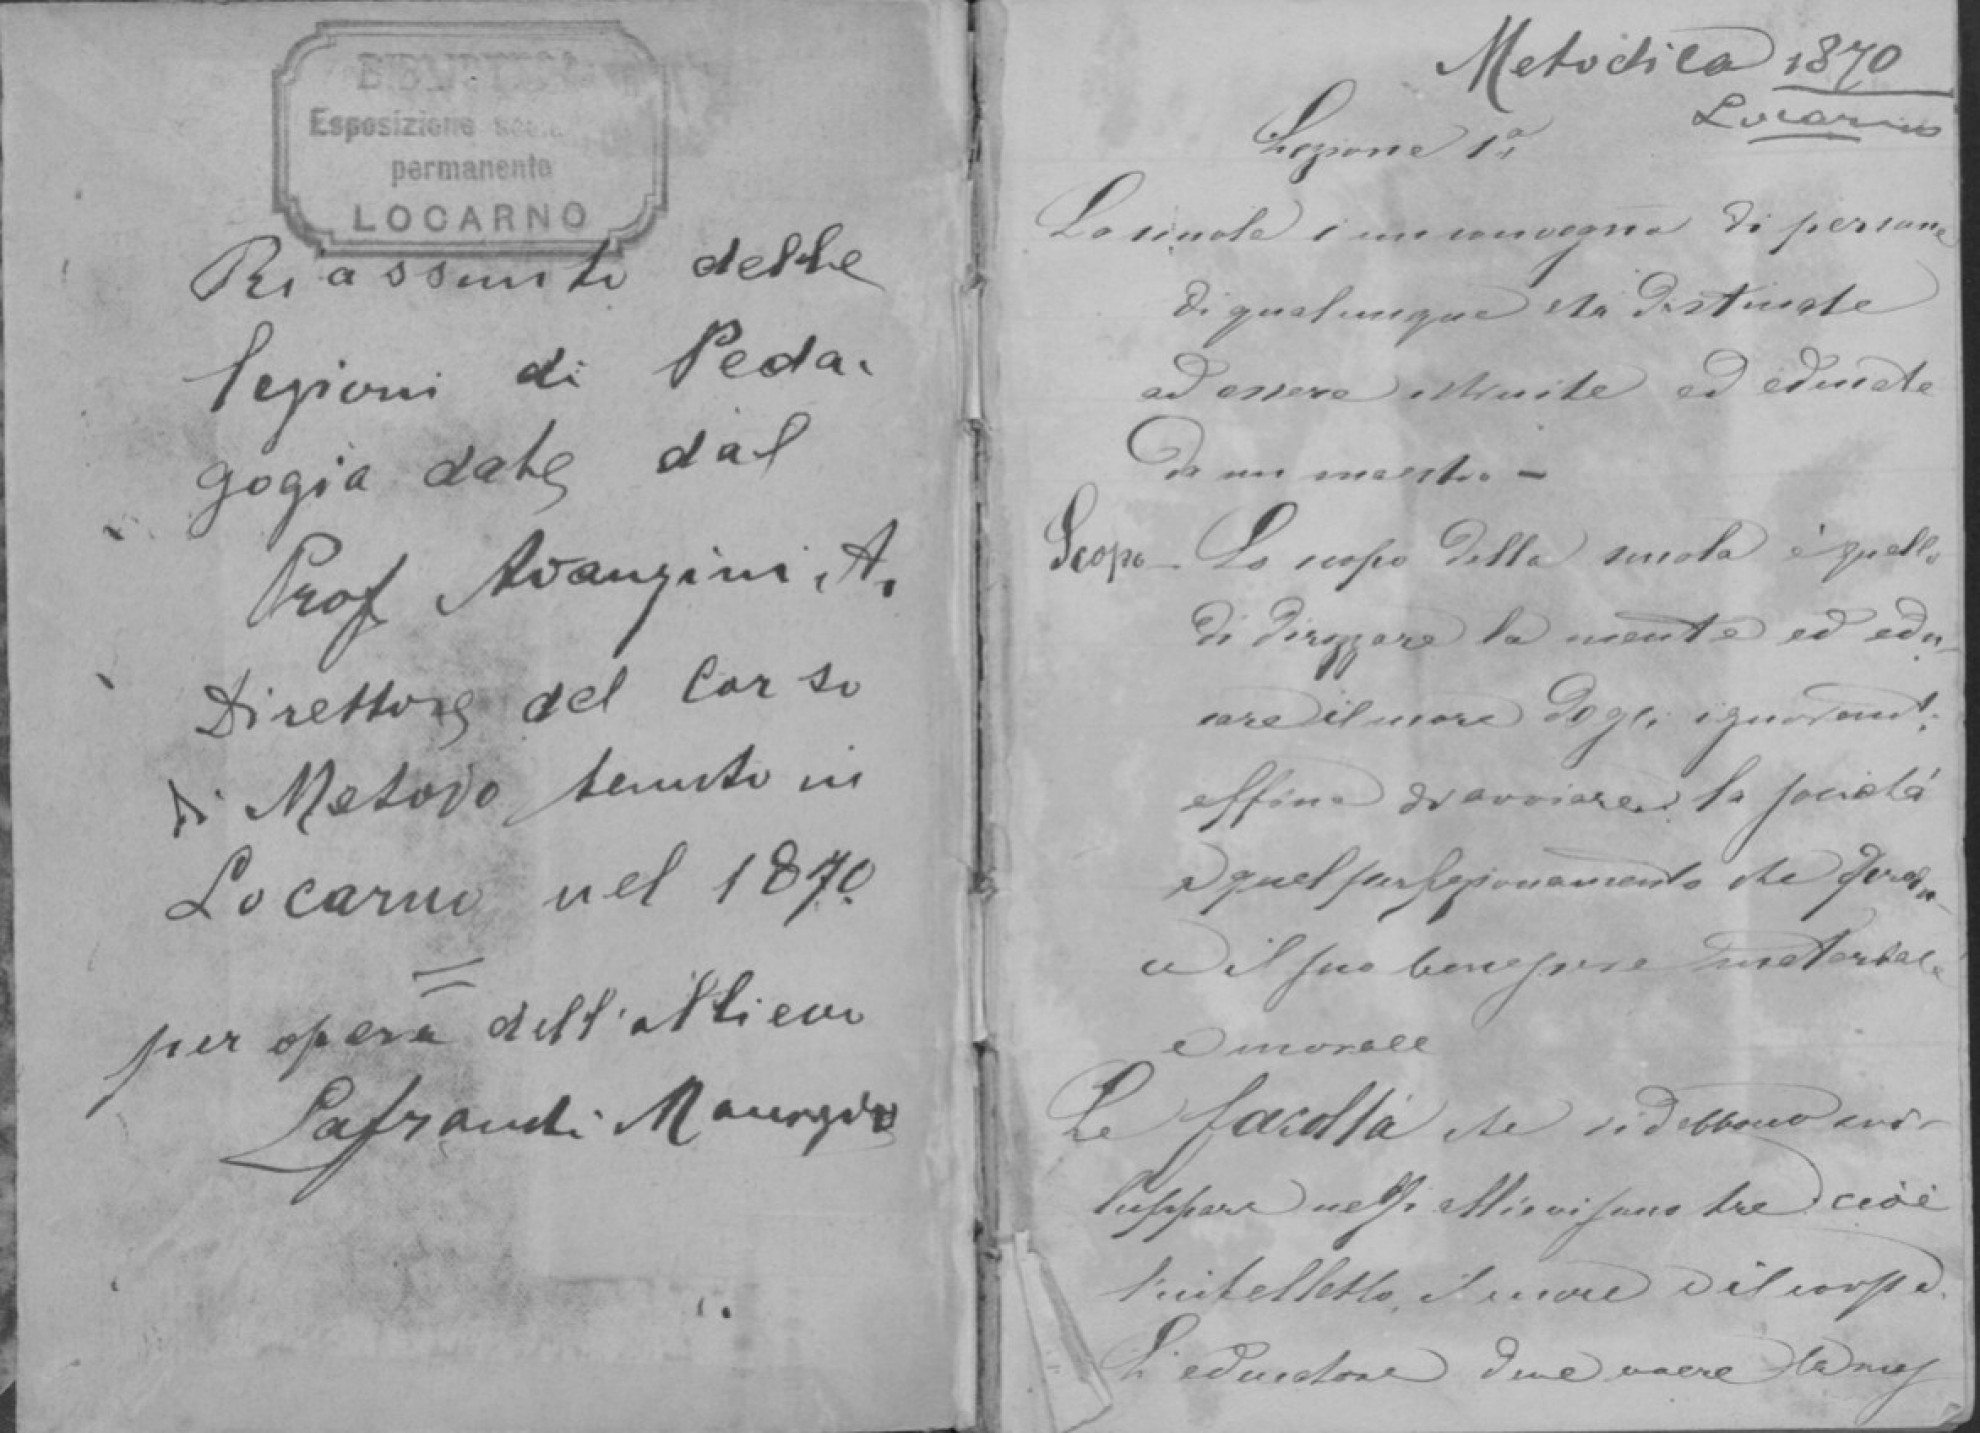 BIBLIOTECA
Esposizione scol.
permanente
LOCARNO
Riassunto delle
lezioni di Peda-
gogia date dal
Prof Avanzini A.
Direttore del Corso
di Metodo tenuto in
Locarno nel 1870
per opera dell'allievo
Lafranchi Maurizio
Metodica 1870
Locarno
Lezione 1a
La scuola è un convegno di persone
di qualunque età destinate
ad essere istruite ed educate
da un maestro -
Scopo - Lo scopo della scuola è quello
di dirozzare la mente ed edu-
care il cuore degli ignoranti
affine di avviare la società
a quel perfezionamento che
il suo benessere materiale
e morale
Le facoltà che si debbono svi-
luppare negli allievi sono tre cioè
l'intelletto, il cuore e il corpo.
L'educatore deve